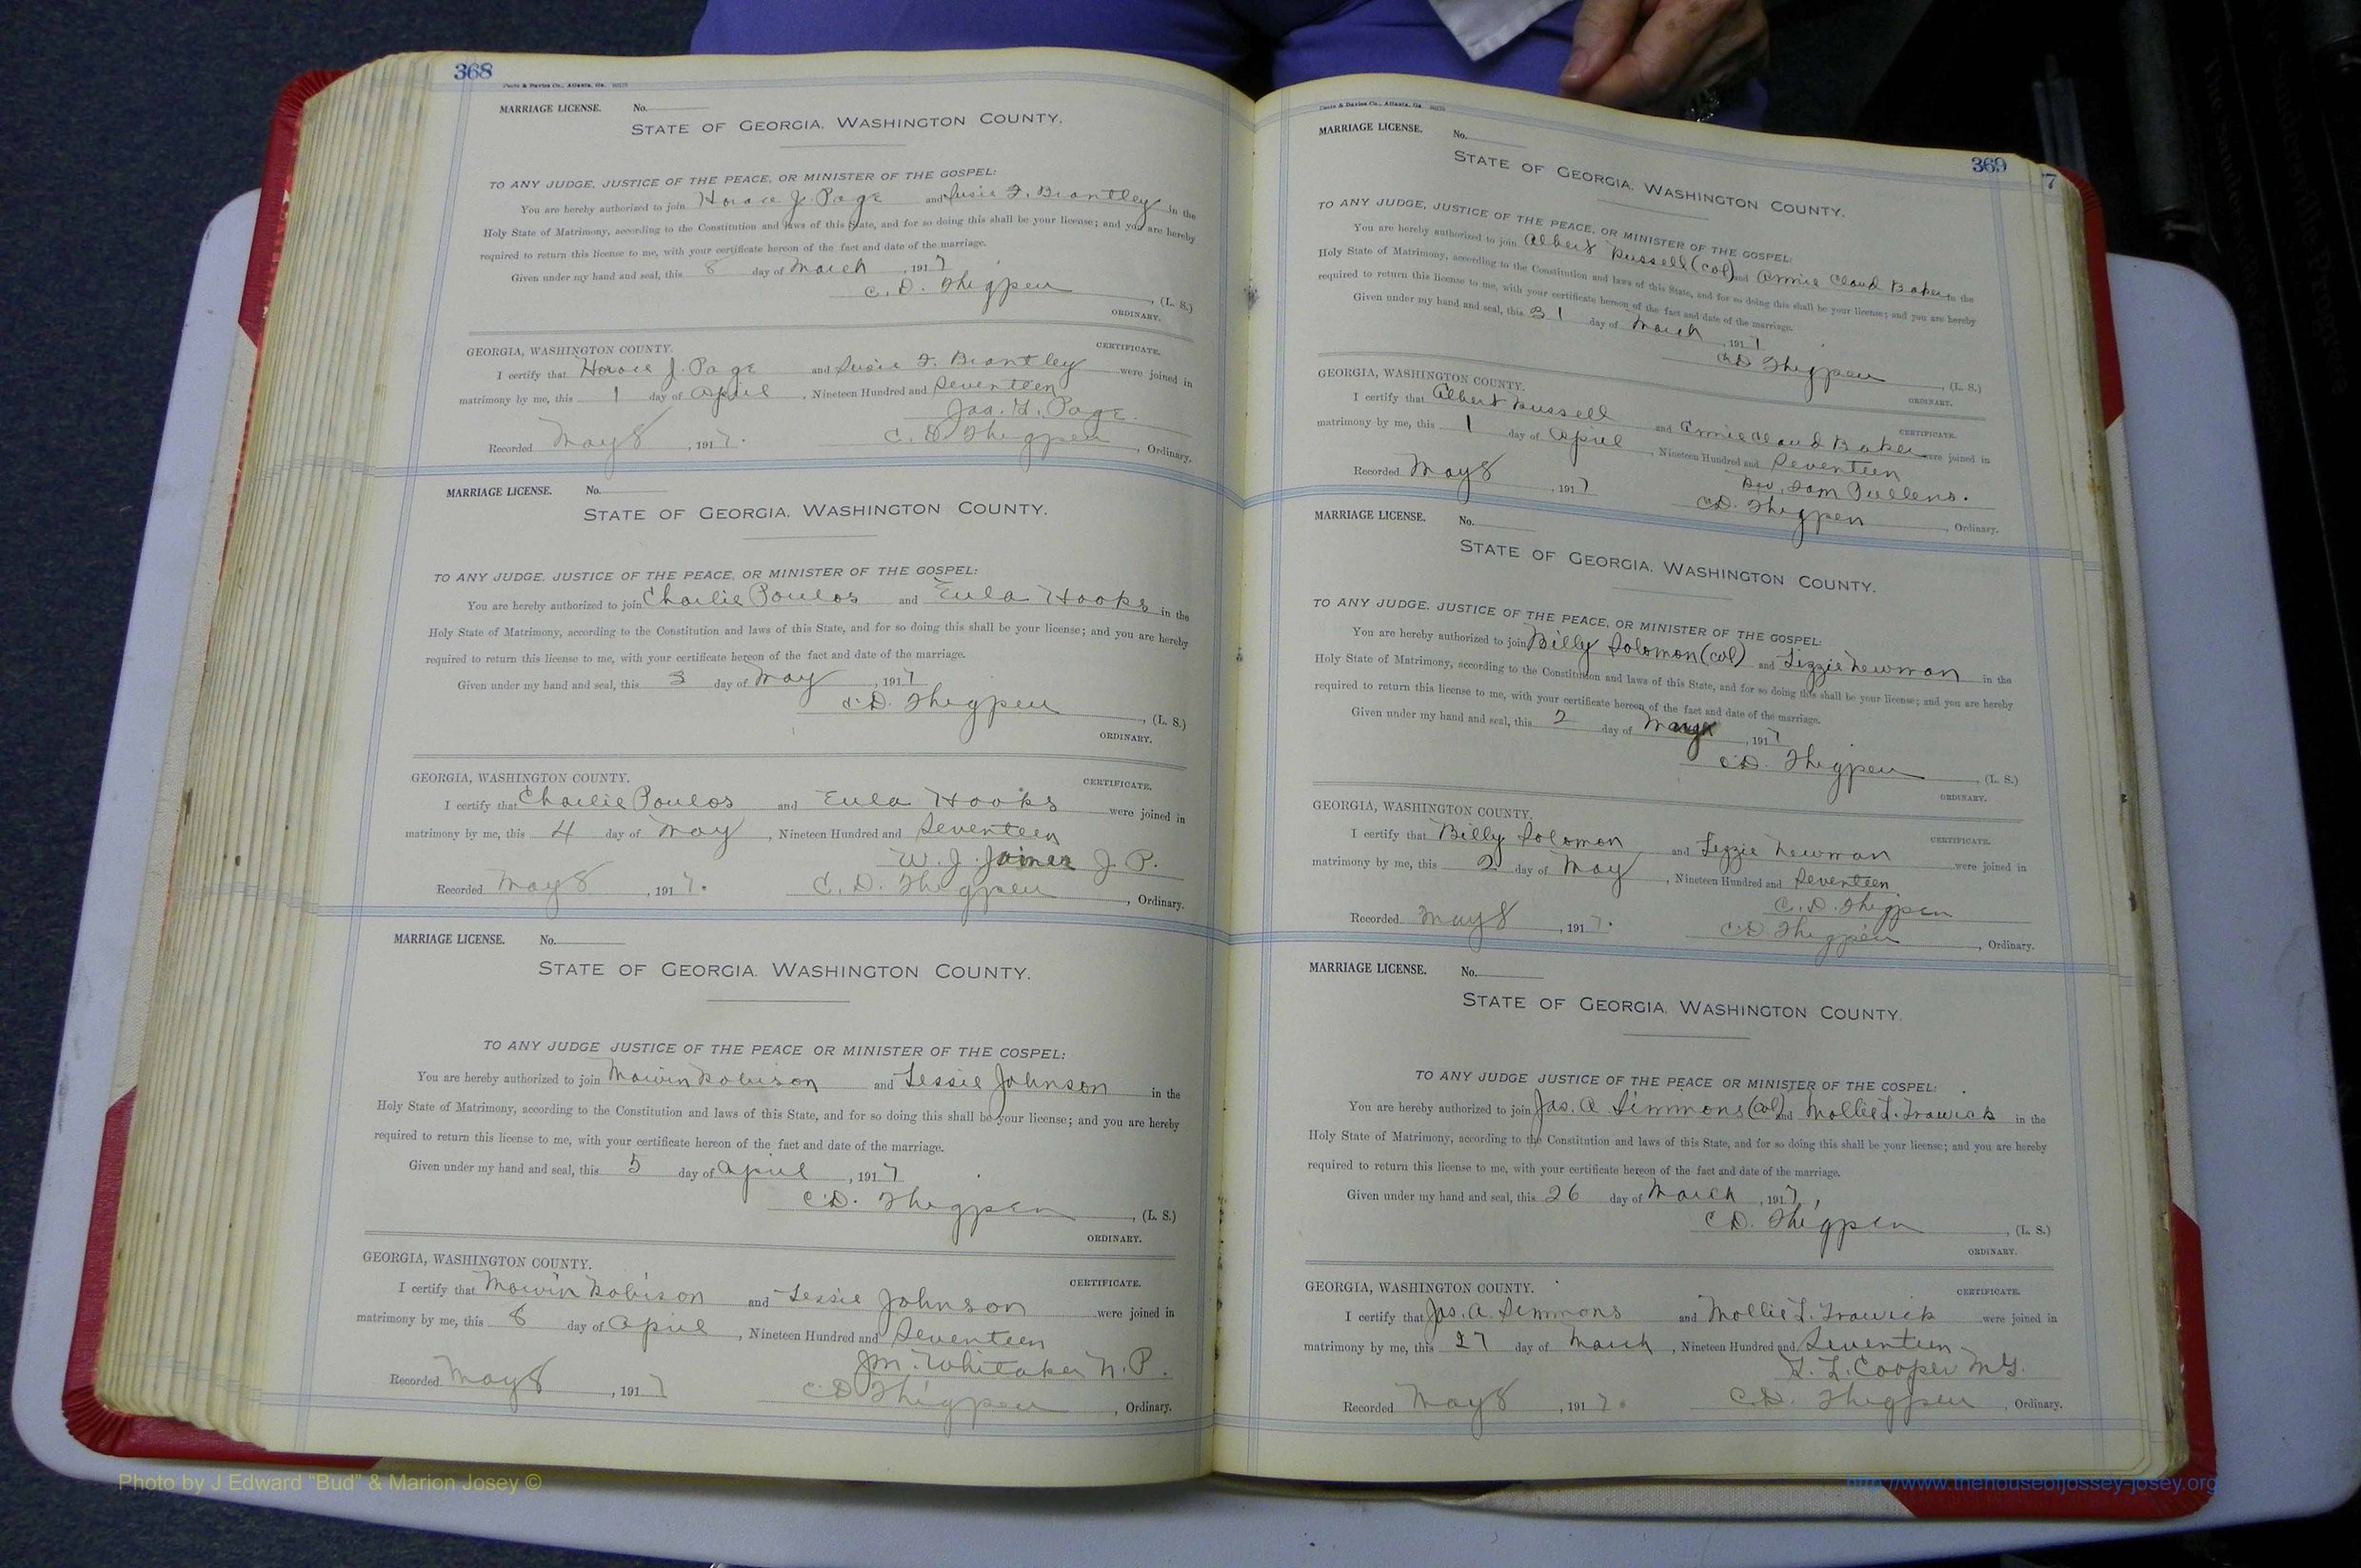 368
MARRIAGE LICENSE. No.
STATE OF GEORGIA. WASHINGTON COUNTY.
TO ANY JUDGE, JUSTICE OF THE PEACE, OR MINISTER OF THE GOSPEL:
You are hereby authorized to join Horace J. Page and Susie F. Brantley in the
Holy State of Matrimony, according to the Constitution and laws of this State, and for so doing this shall be your license; and you are hereby
required to return this license to me, with your certificate hereon of the fact and date of the marriage.
Given under my hand and seal, this 8 day of March, 1917
C. D. Thigpen, (L. S.)
ORDINARY.
GEORGIA, WASHINGTON COUNTY. CERTIFICATE.
I certify that Horace J. Page and Susie F. Brantley were joined in
matrimony by me, this 1 day of April, Nineteen Hundred and Seventeen
Page.
Recorded May 8, 1917. C. D. Thigpen, Ordinary.
MARRIAGE LICENSE. No.
STATE OF GEORGIA. WASHINGTON COUNTY.
TO ANY JUDGE, JUSTICE OF THE PEACE, OR MINISTER OF THE GOSPEL:
You are hereby authorized to join Charlie Poulos and Eula Hooks in the
Holy State of Matrimony, according to the Constitution and laws of this State, and for so doing this shall be your license; and you are hereby
required to return this license to me, with your certificate hereon of the fact and date of the marriage.
Given under my hand and seal, this 3 day of May, 1917
C. D. Thigpen, (L. S.)
ORDINARY.
GEORGIA, WASHINGTON COUNTY. CERTIFICATE.
I certify that Charlie Poulos and Eula Hooks were joined in
matrimony by me, this 4 day of May, Nineteen Hundred and Seventeen
W. J. Joiner J. P.
Recorded May 8, 1917. C. D. Thigpen, Ordinary.
MARRIAGE LICENSE. No.
STATE OF GEORGIA. WASHINGTON COUNTY.
TO ANY JUDGE JUSTICE OF THE PEACE OR MINISTER OF THE GOSPEL:
You are hereby authorized to join Marvin Robison and Lessie Johnson in the
Holy State of Matrimony, according to the Constitution and laws of this State, and for so doing this shall be your license; and you are hereby
required to return this license to me, with your certificate hereon of the fact and date of the marriage.
Given under my hand and seal, this 5 day of April, 1917
C. D. Thigpen, (L. S.)
ORDINARY.
GEORGIA, WASHINGTON COUNTY. CERTIFICATE.
I certify that Marvin Robison and Lessie Johnson were joined in
matrimony by me, this 8 day of April, Nineteen Hundred and Seventeen
J.M. Whitaker N. P.
Recorded May 8, 1917 C. D. Thigpen, Ordinary.
369
7
MARRIAGE LICENSE. No.
STATE OF GEORGIA. WASHINGTON COUNTY.
TO ANY JUDGE, JUSTICE OF THE PEACE, OR MINISTER OF THE GOSPEL:
You are hereby authorized to join Albert Russell (col) and Annie Claud Baker in the
Holy State of Matrimony, according to the Constitution and laws of this State, and for so doing this shall be your license; and you are hereby
required to return this license to me, with your certificate hereon of the fact and date of the marriage.
Given under my hand and seal, this 31 day of March, 1917
C. D. Thigpen, (L. S.)
ORDINARY.
GEORGIA, WASHINGTON COUNTY. CERTIFICATE.
I certify that Albert Russell and Annie Claud Baker were joined in
matrimony by me, this 1 day of April, Nineteen Hundred and Seventeen
Rev. Sam Pullens.
Recorded May 8, 1917 C. D. Thigpen, Ordinary.
MARRIAGE LICENSE. No.
STATE OF GEORGIA. WASHINGTON COUNTY.
TO ANY JUDGE, JUSTICE OF THE PEACE, OR MINISTER OF THE GOSPEL:
You are hereby authorized to join Billy Solomon (col) and Lizzie Newman in the
Holy State of Matrimony, according to the Constitution and laws of this State, and for so doing this shall be your license; and you are hereby
required to return this license to me, with your certificate hereon of the fact and date of the marriage.
Given under my hand and seal, this 2 day of May, 1917
C. D. Thigpen, (L. S.)
ORDINARY.
GEORGIA, WASHINGTON COUNTY. CERTIFICATE.
I certify that Billy Solomon and Lizzie Newman were joined in
matrimony by me, this 2 day of May, Nineteen Hundred and Seventeen
C. D. Thigpen
Recorded May 8, 1917. C. D. Thigpen, Ordinary.
MARRIAGE LICENSE. No.
STATE OF GEORGIA. WASHINGTON COUNTY.
TO ANY JUDGE JUSTICE OF THE PEACE OR MINISTER OF THE GOSPEL:
You are hereby authorized to join Jas. A Simmons (col) and Mollie L. Trawick in the
Holy State of Matrimony, according to the Constitution and laws of this State, and for so doing this shall be your license; and you are hereby
required to return this license to me, with your certificate hereon of the fact and date of the marriage.
Given under my hand and seal, this 26 day of March, 1917,
C. D. Thigpen, (L. S.)
ORDINARY.
GEORGIA, WASHINGTON COUNTY. CERTIFICATE.
I certify that Jas. A. Simmons and Mollie L. Trawick were joined in
matrimony by me, this 27 day of March, Nineteen Hundred and Seventeen
Cooper M.G.
Recorded May 8, 1917. C. D. Thigpen, Ordinary.
Photo by J Edward "Bud" & Marion Josey ©
http://www.thehouseofjossey-josey.org